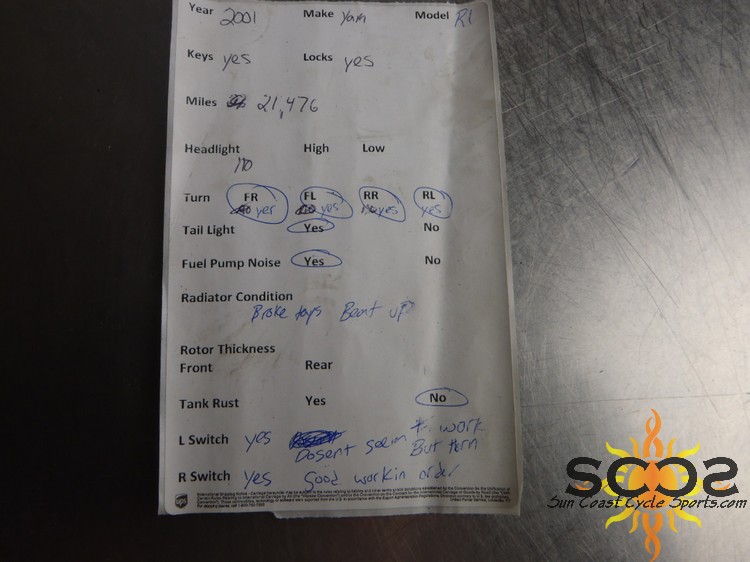 Year 2001 Make Yam Model R1
Keys yes Locks yes
Miles 21,476
Headlight High Low
NO
Turn FR FL RR RL
no yes no yes no yes yes
Tail Light Yes No
Fuel Pump Noise Yes No
Radiator Condition
Broke tays Beant up
Rotor Thickness
Front Rear
Tank Rust Yes No
L Switch yes Dosent seeim to work
But torn
R Switch yes Good workin order
SCCS
Sun Coast Cycle Sports.com
ups